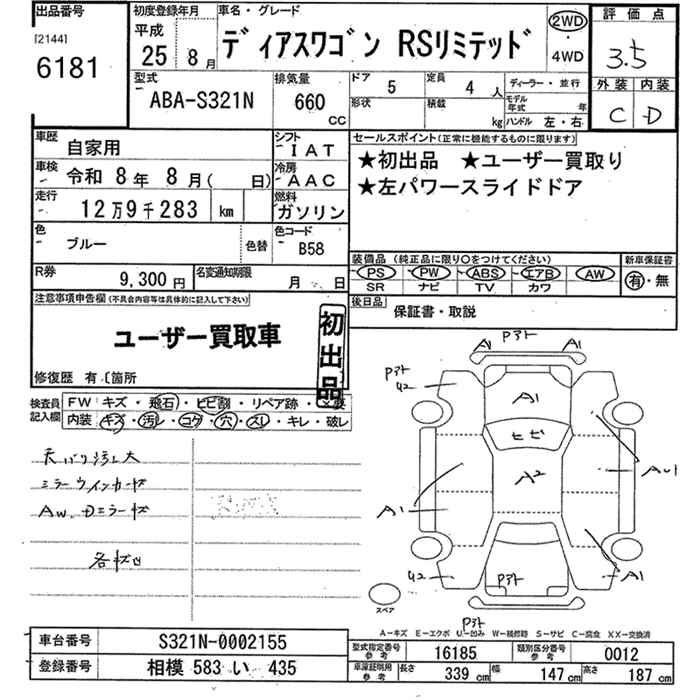 出品番号
[2144]
6181
初度登録年月
平成
25 8月
車名・グレード
ディアスワゴン RSリミテッド
2WD
・
4WD
評価点
3.5
外装 内装
C D
型式
ABA-S321N
排気量
660
CC
ドア 5
定員 4人
形状
積載 kg
ディーラー・並行
モデル年式 年
ハンドル 左・右
車歴 自家用
シフト IAT
車検 令和 8年 8月( 日)
冷房 AAC
走行 12万9千283 km
燃料 ガソリン
色 ブルー
色替
色コード B58
R券 9,300円
名変通知期限 月 日
セールスポイント(正常に機能するものに限ります)
★初出品 ★ユーザー買取り
★左パワースライドドア
装備品 (純正品に限り〇をつけてください)
PS PW ABS エアB AW
SR ナビ TV カワ
新車保証書
有・無
後日品
保証書・取説
注意事項申告欄(不具合内容等は具体的に記入して下さい)
ユーザー買取車
初出品
修復歴 有〔箇所
検査員記入欄
FW キズ・飛石・ヒビ割・リペア跡・×要
内装 キズ・汚レ・コゲ・穴・スレ・キレ・破レ
天バリ汚レ大
ミラーウインカーキズ
AW、Dミラーキズ
各キズ凹
P3ト
A1 A1
P3ト
U2
A1
ヒビ
A2
A1
AU1
U2
P3ト
A1
スペア
P3ト
A-キズ E-エクボ U-凹み W-補修跡 S-サビ C-腐食 XX-交換済
車台番号 S321N-0002155
登録番号 相模 583 い 435
型式指定番号 参考 16185
類別区分番号 参考 0012
車庫証明用 参考
長さ 339 cm 幅 147 cm 高さ 187 cm